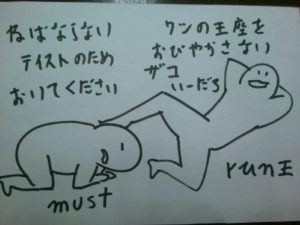 ねばならない
テイストのため
おいてください
の王座を
おびやかさない
ザコ
いーだろ
must
run王